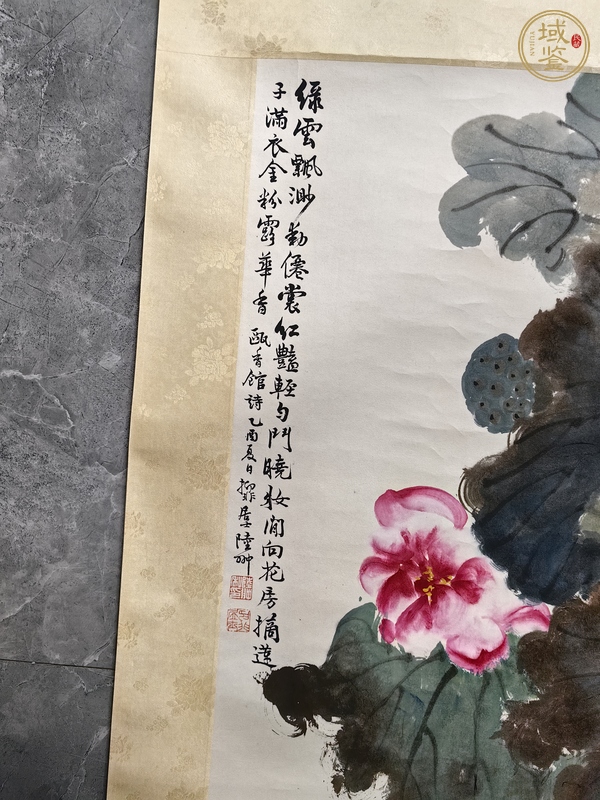 綠雲飄渺動僊裳紅豔輕勻鬥曉妝閒向花房摘蓮
子滿衣金粉露華香 甌香館詩乙酉夏日 居士陸翀
域鑒
YUJIAN